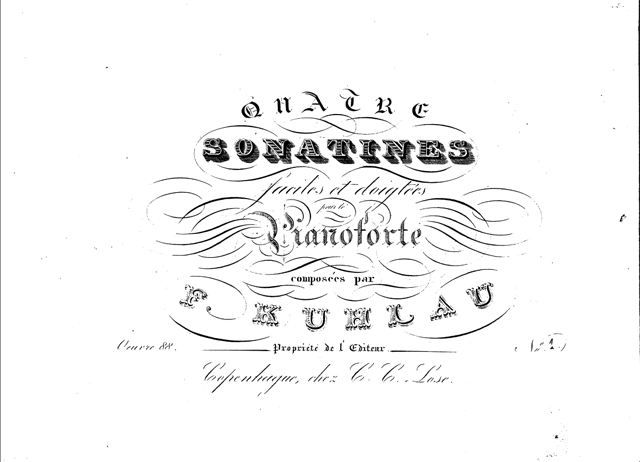 QUATRE
SONATINES
faciles et doigtées
pour le
Pianoforte
composées par
F. KUHLAU
Oeuvre 88. Propriété de l'Editeur. No. 1
Copenhague, chez C. C. Lose.